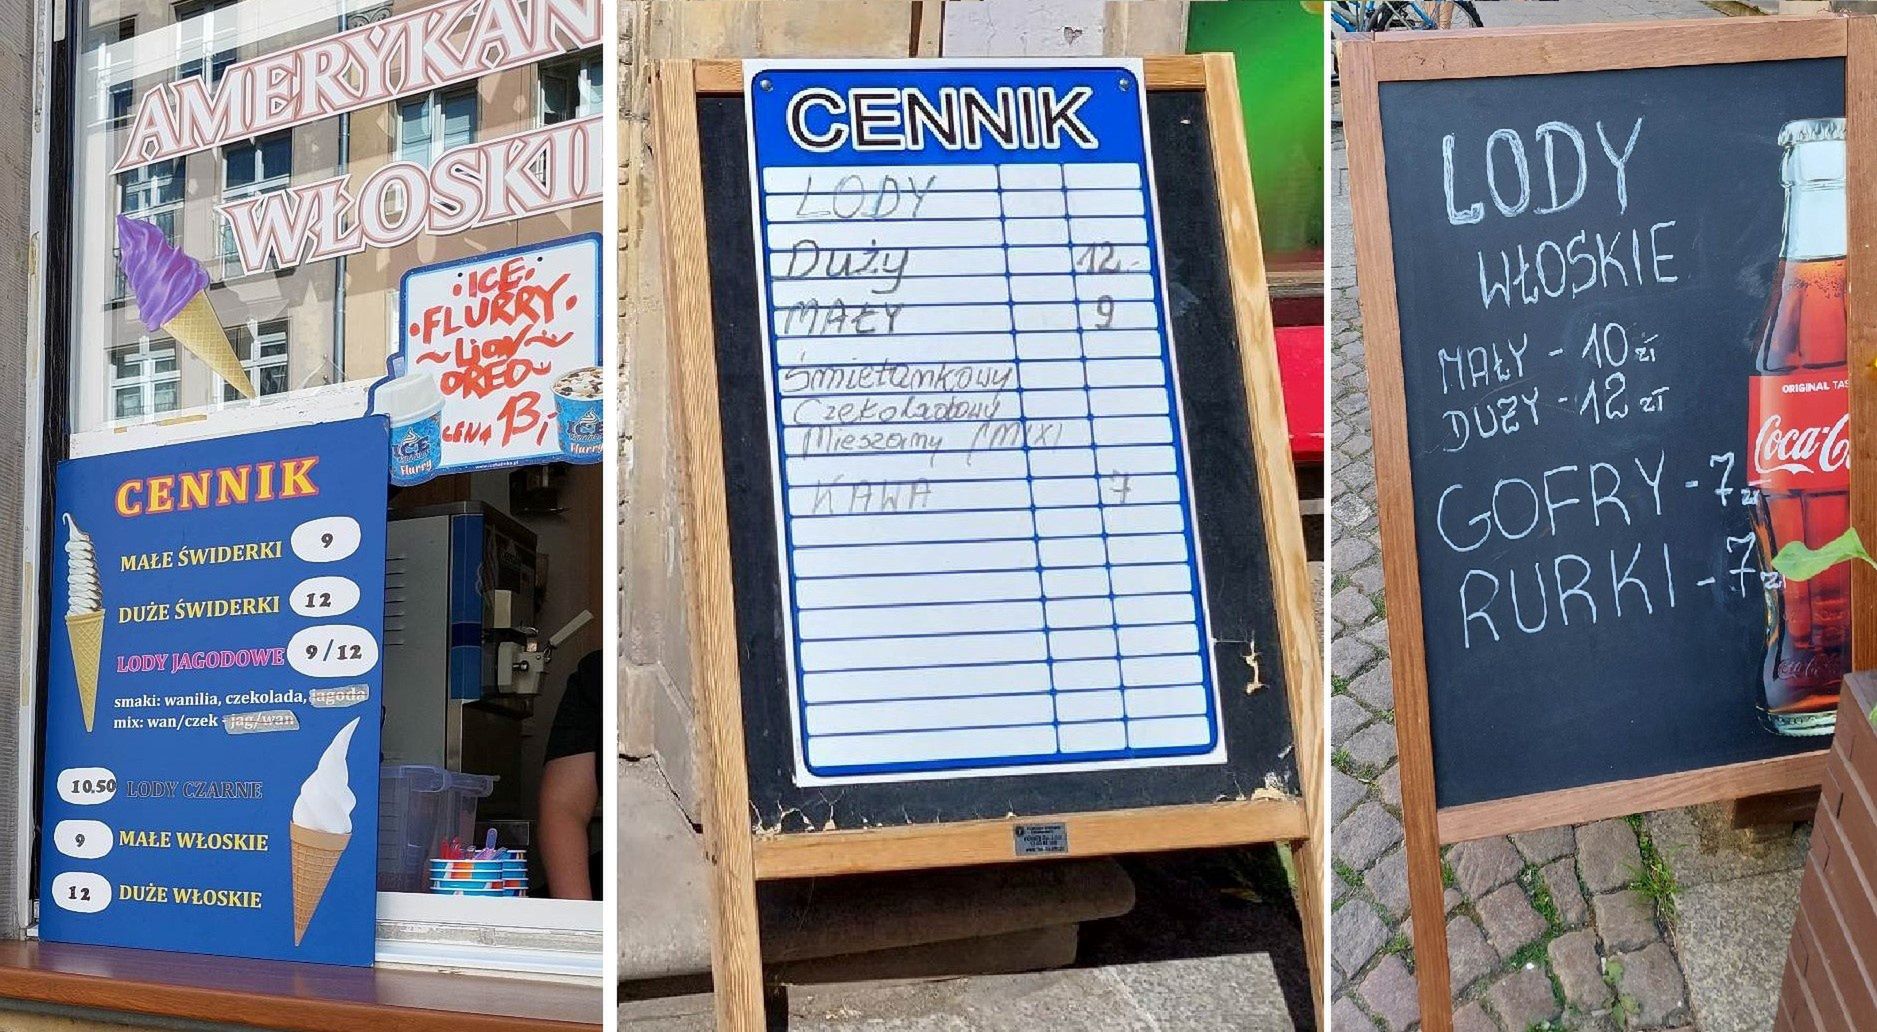 AMERYKAN
WŁOSKIE
ICE
FLURRY
~Lion~
OREO
CENA 13,-
ICE
Flurry
ICE
Flurry
CENNIK
MAŁE ŚWIDERKI 9
DUŻE ŚWIDERKI 12
LODY JAGODOWE 9/12
smaki: wanilia, czekolada, jagoda
mix: wan/czek - jag/wan
10.50 LODY CZARNE
9 MAŁE WŁOSKIE
12 DUŻE WŁOSKIE
CENNIK
LODY
Duży 12.-
MAŁY 9
Śmietankowy
Czekoladowy
Mieszany (MIX)
KAWA 7
LODY
WŁOSKIE
MAŁY - 10 zł
DUŻY - 12 zł
GOFRY - 7 zł
RURKI - 7 zł
ORIGINAL TAS
Coca-C